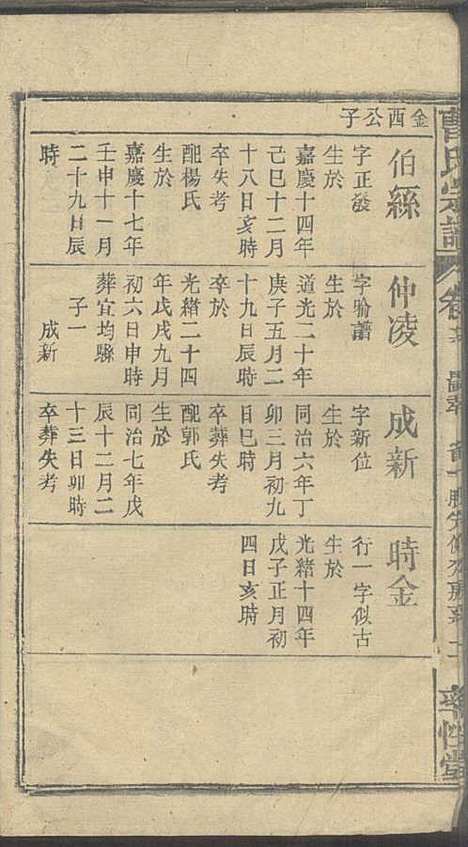 曹氏宗譜
卷
率性堂
金西公子
伯繇
字正發
生於
嘉慶十四年
己巳十二月
十八日亥時
卒失考
配楊氏
生於
嘉慶十七年
壬申十一月
二十九日辰
時
仲凌
字瑜譜
生於
道光二十年
庚子五月二
十九日辰時
卒於
光緒二十四
年戊戌九月
初六日申時
葬宜均縣
子一
成新
成新
字新位
生於
同治六年丁
卯三月初九
日巳時
卒葬失考
配郭氏
生於
同治七年戊
辰十二月二
十三日卯時
卒葬失考
時金
行一字似古
生於
光緒十四年
戊子正月初
四日亥時